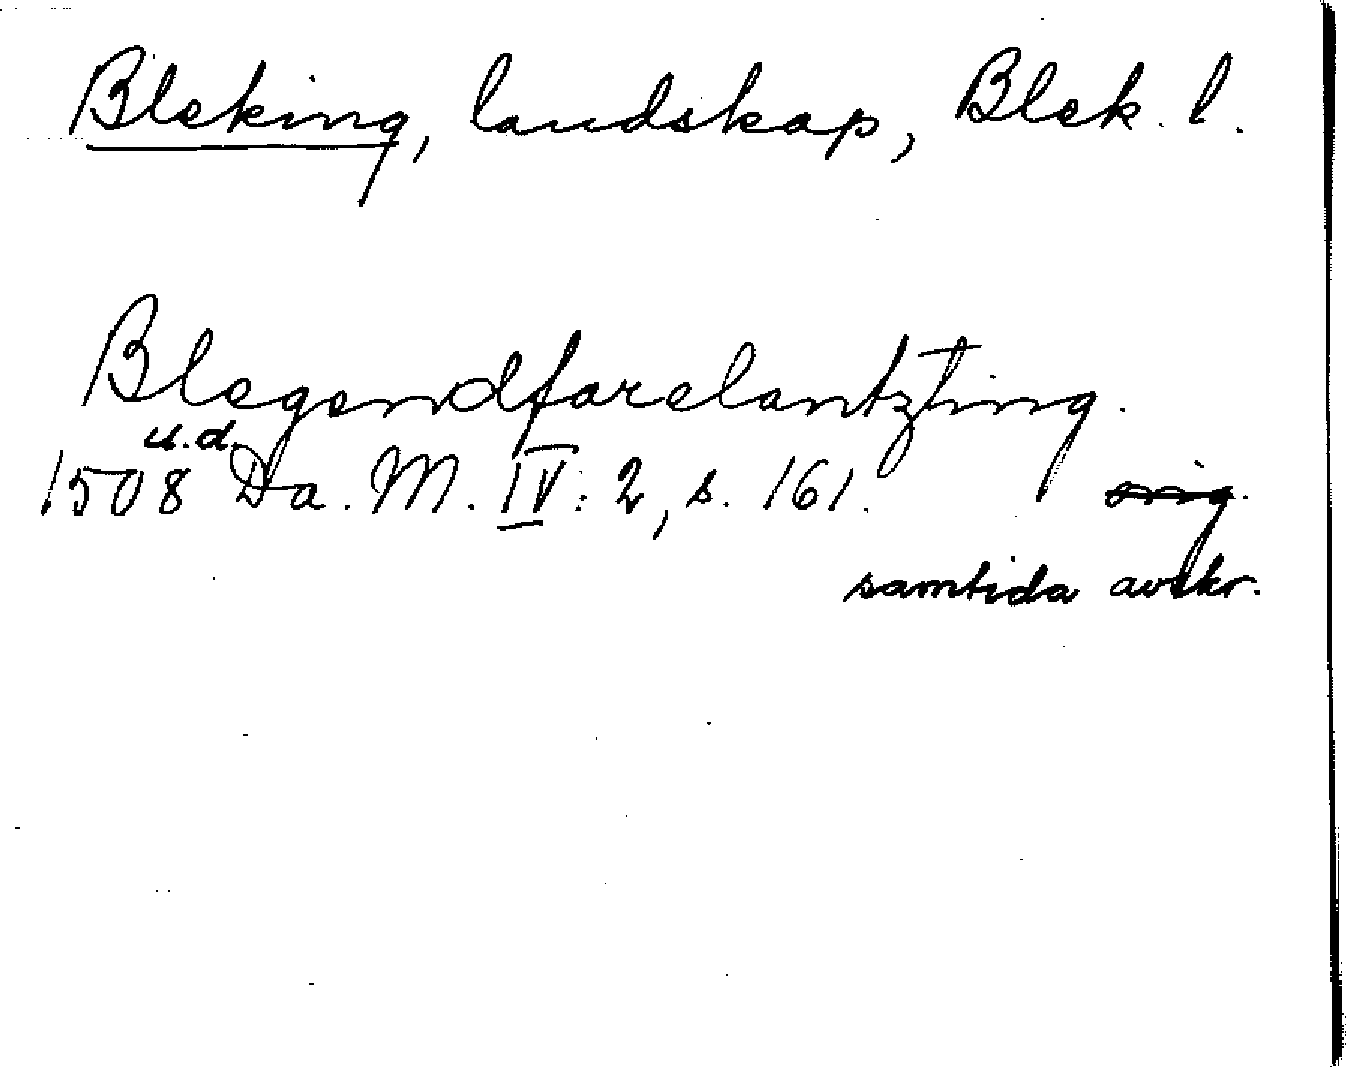 Bleking, landskap, Blek. l.
Blegendfarelantzting.
u.d.
1508 Da. M. IV: 2, s. 161.
samtida avskr.